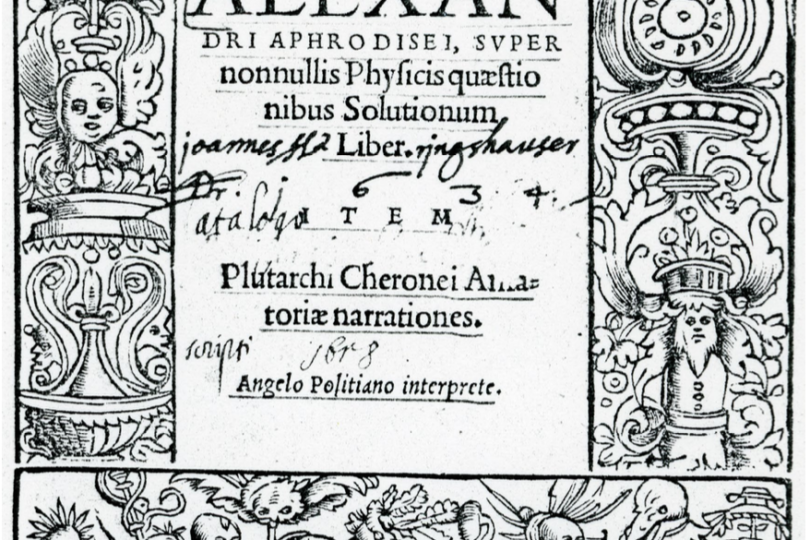 ALEXAN
DRI APHRODISEI, SVPER
nonnullis Phyſicis quæſtio
nibus Solutionum
joannes Liber. ringshauser
6 3 4.
I T E M
Plutarchi Cheronei Ama-
toriæ narrationes.
scripti 1618
Angelo Politiano interprete.